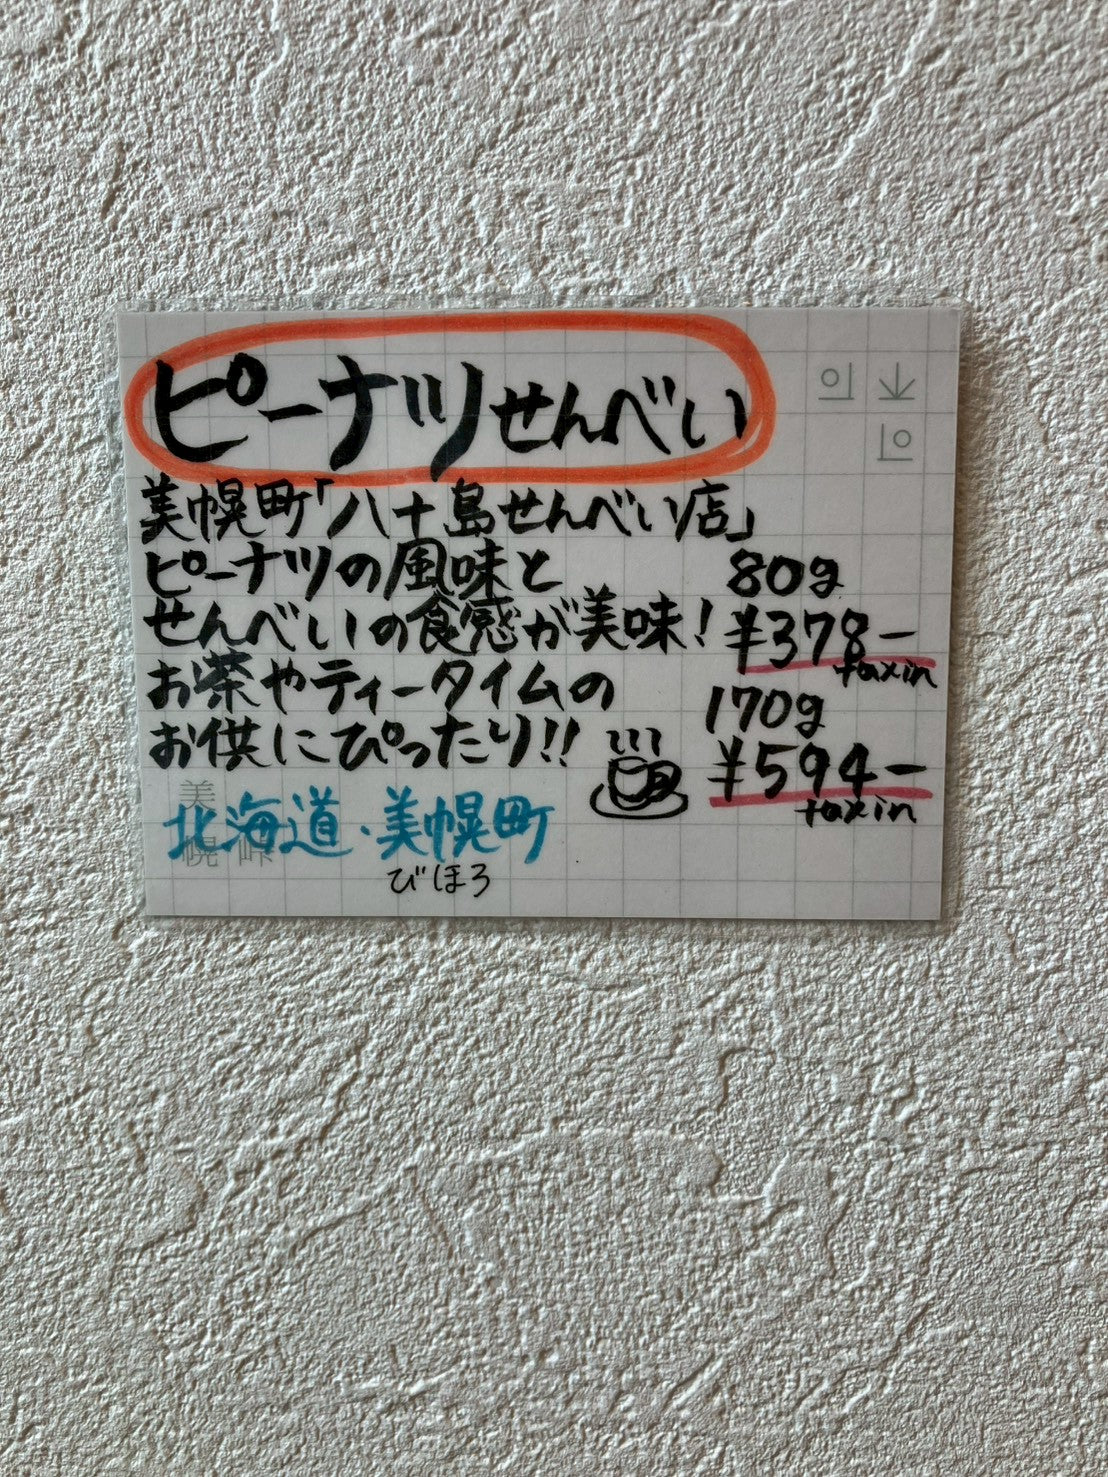 ピーナツせんべい
美幌町「八十島せんべい店」
ピーナツの風味と
せんべいの食感が美味!
お茶やティータイムの
お供にぴったり!!
80g
¥378-
taxin
170g
¥594-
taxin
北海道・美幌町
びほろ
美
幌 峠